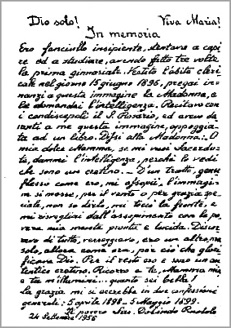 Dio solo! Viva Maria!
In memoria
Ero fanciullo insipiente, stentavo a capi=
re ed a studiare, avendo fatto tre volte
la prima ginnasiale. Vestito l'abito cleri
cale nel giorno 15 giugno 1896, pregai in=
nanzi a questa immagine la Madonna, e
le domandai l'intelligenza. Recitavo con
i condiscepoli il S. Rosario, ed avevo da
vanti a me questa immagine, appoggia=
ta ad un libro. Dissi alla Madonna: O
mia dolce Mamma, se mi vuoi Sacerdo=
te, dammi l'intelligenza, perché lo vedi
che sono un cretino. D'un tratto, gene
flesso come ero, mi assopii, l'immagi=
ne si mosse, per il vento o per grazia spe
ciale, non so dirlo, mi toccò la fronte, e
mi risvegliai dall'assopimento con la po=
vera mia mente pronta e lucida. Discor
revo di tutto, ero un altro, ma
solo, allora come ora, per ciò che glori
ficava Dio. Per il resto ero e sono un au
tentico cretino. Ricorro a te, Mamma mia
e tra millenni... quanto sei bella!
La grazia mi si accrebbe in due confessioni
generali: 5 aprile 1898 - 5 Maggio 1899.
Il povero Sac. Dolindo Ruotolo
24 Settembre 1956